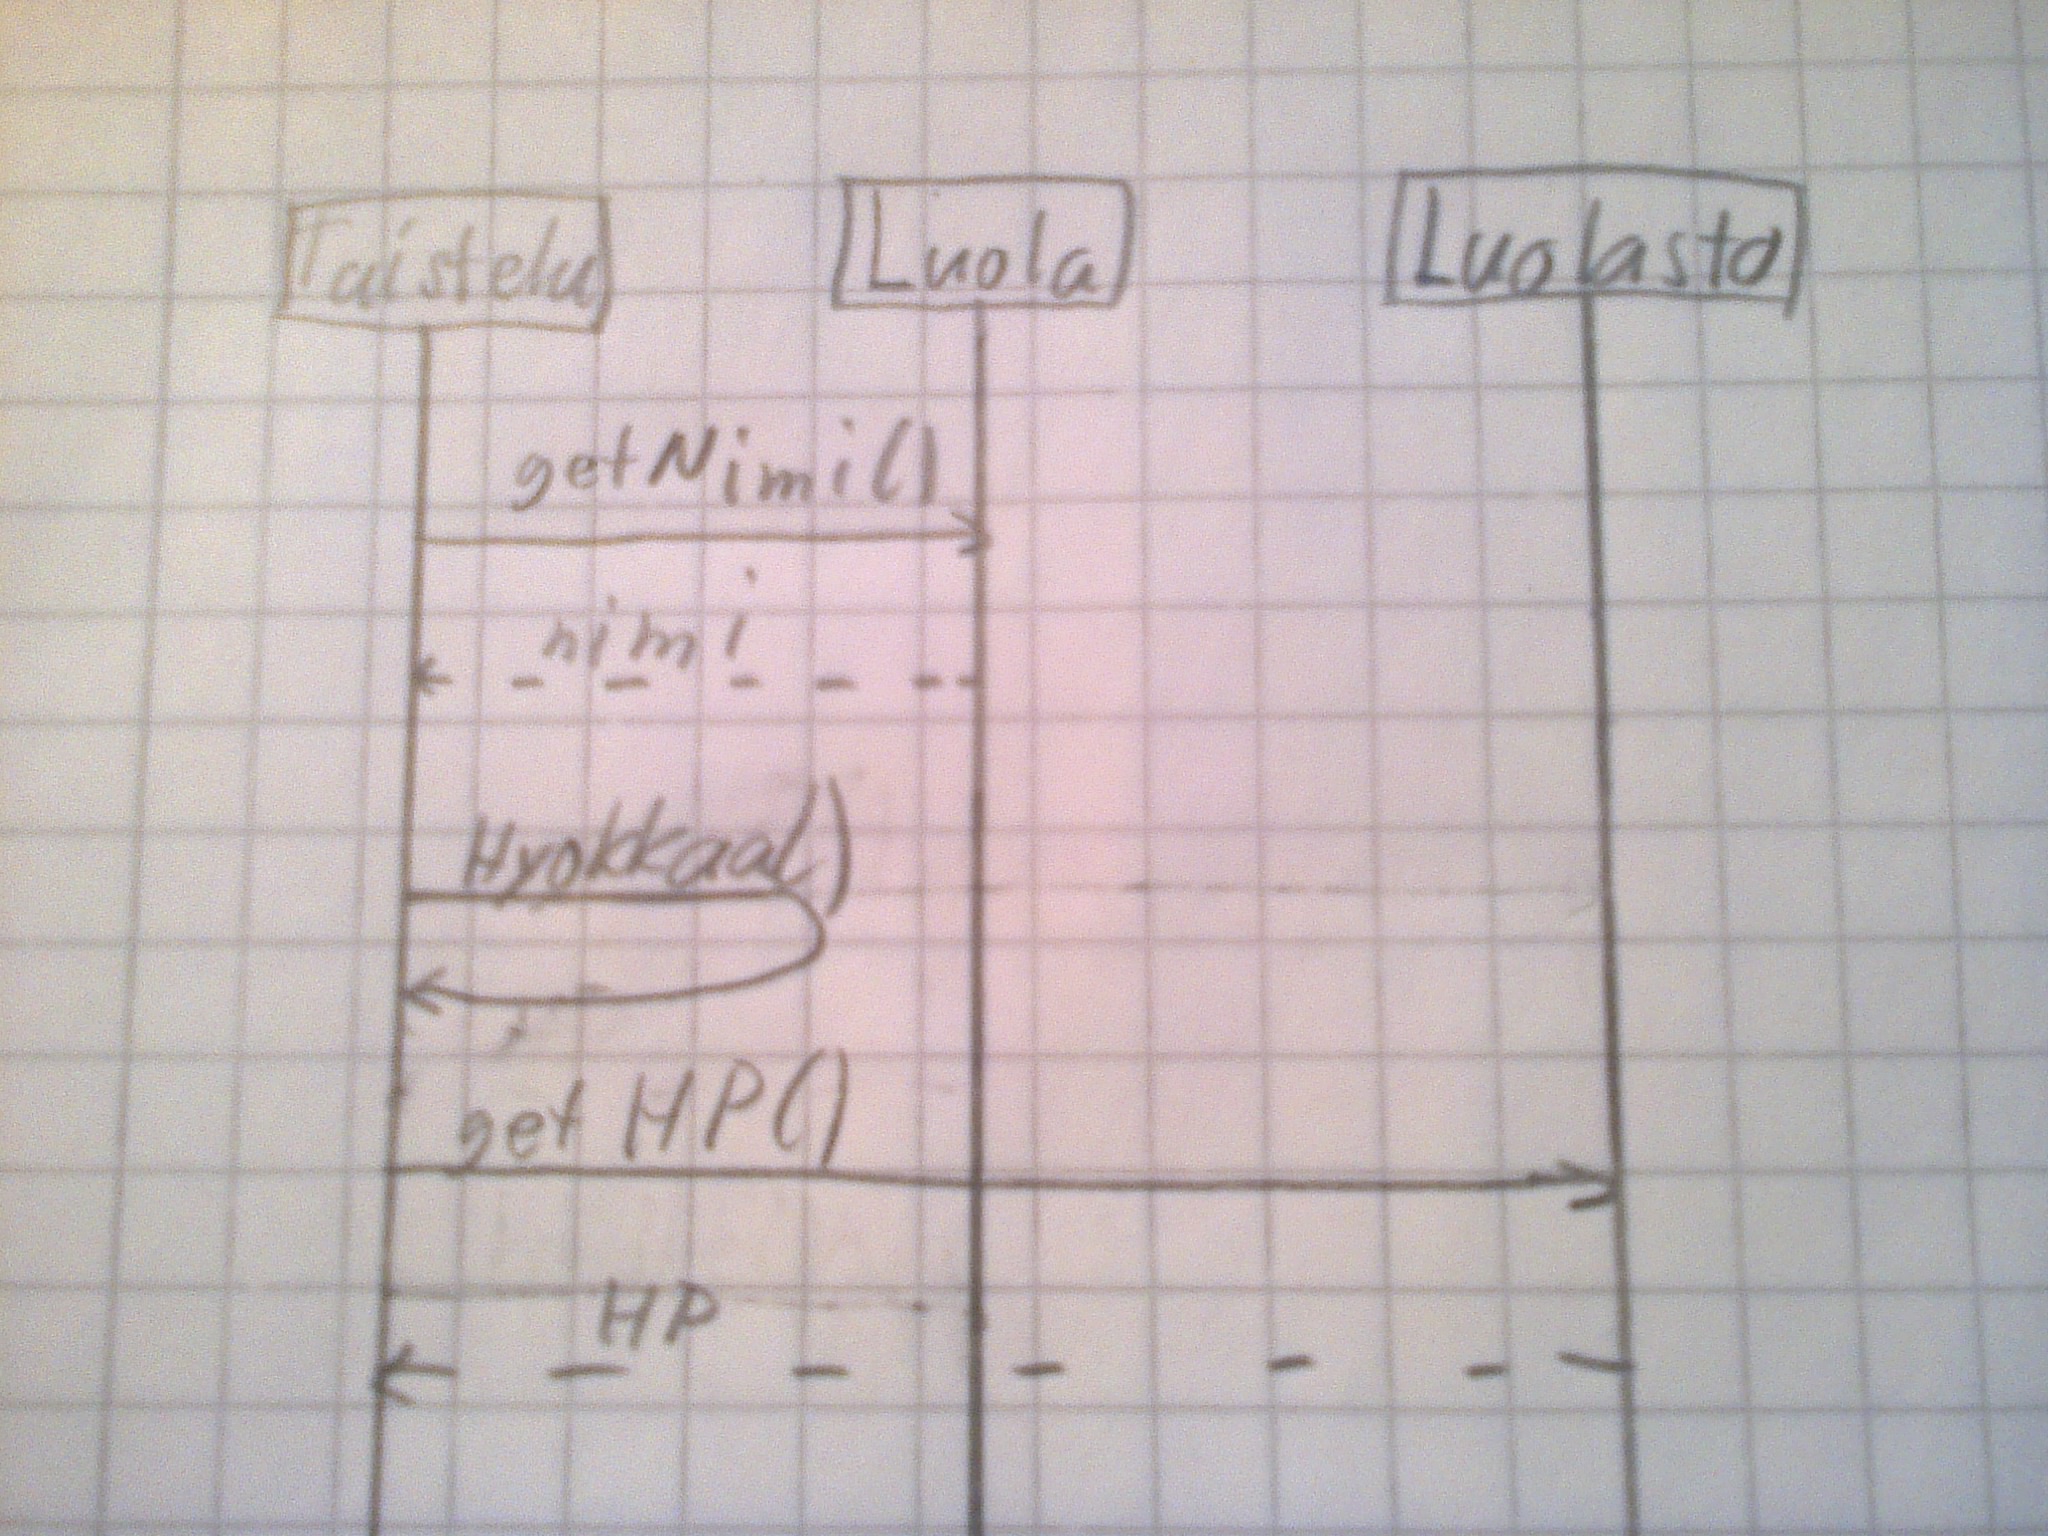 Taistelu Luola Luolasto
getNimi()
nimi
Hyokkaa()
get HP()
HP